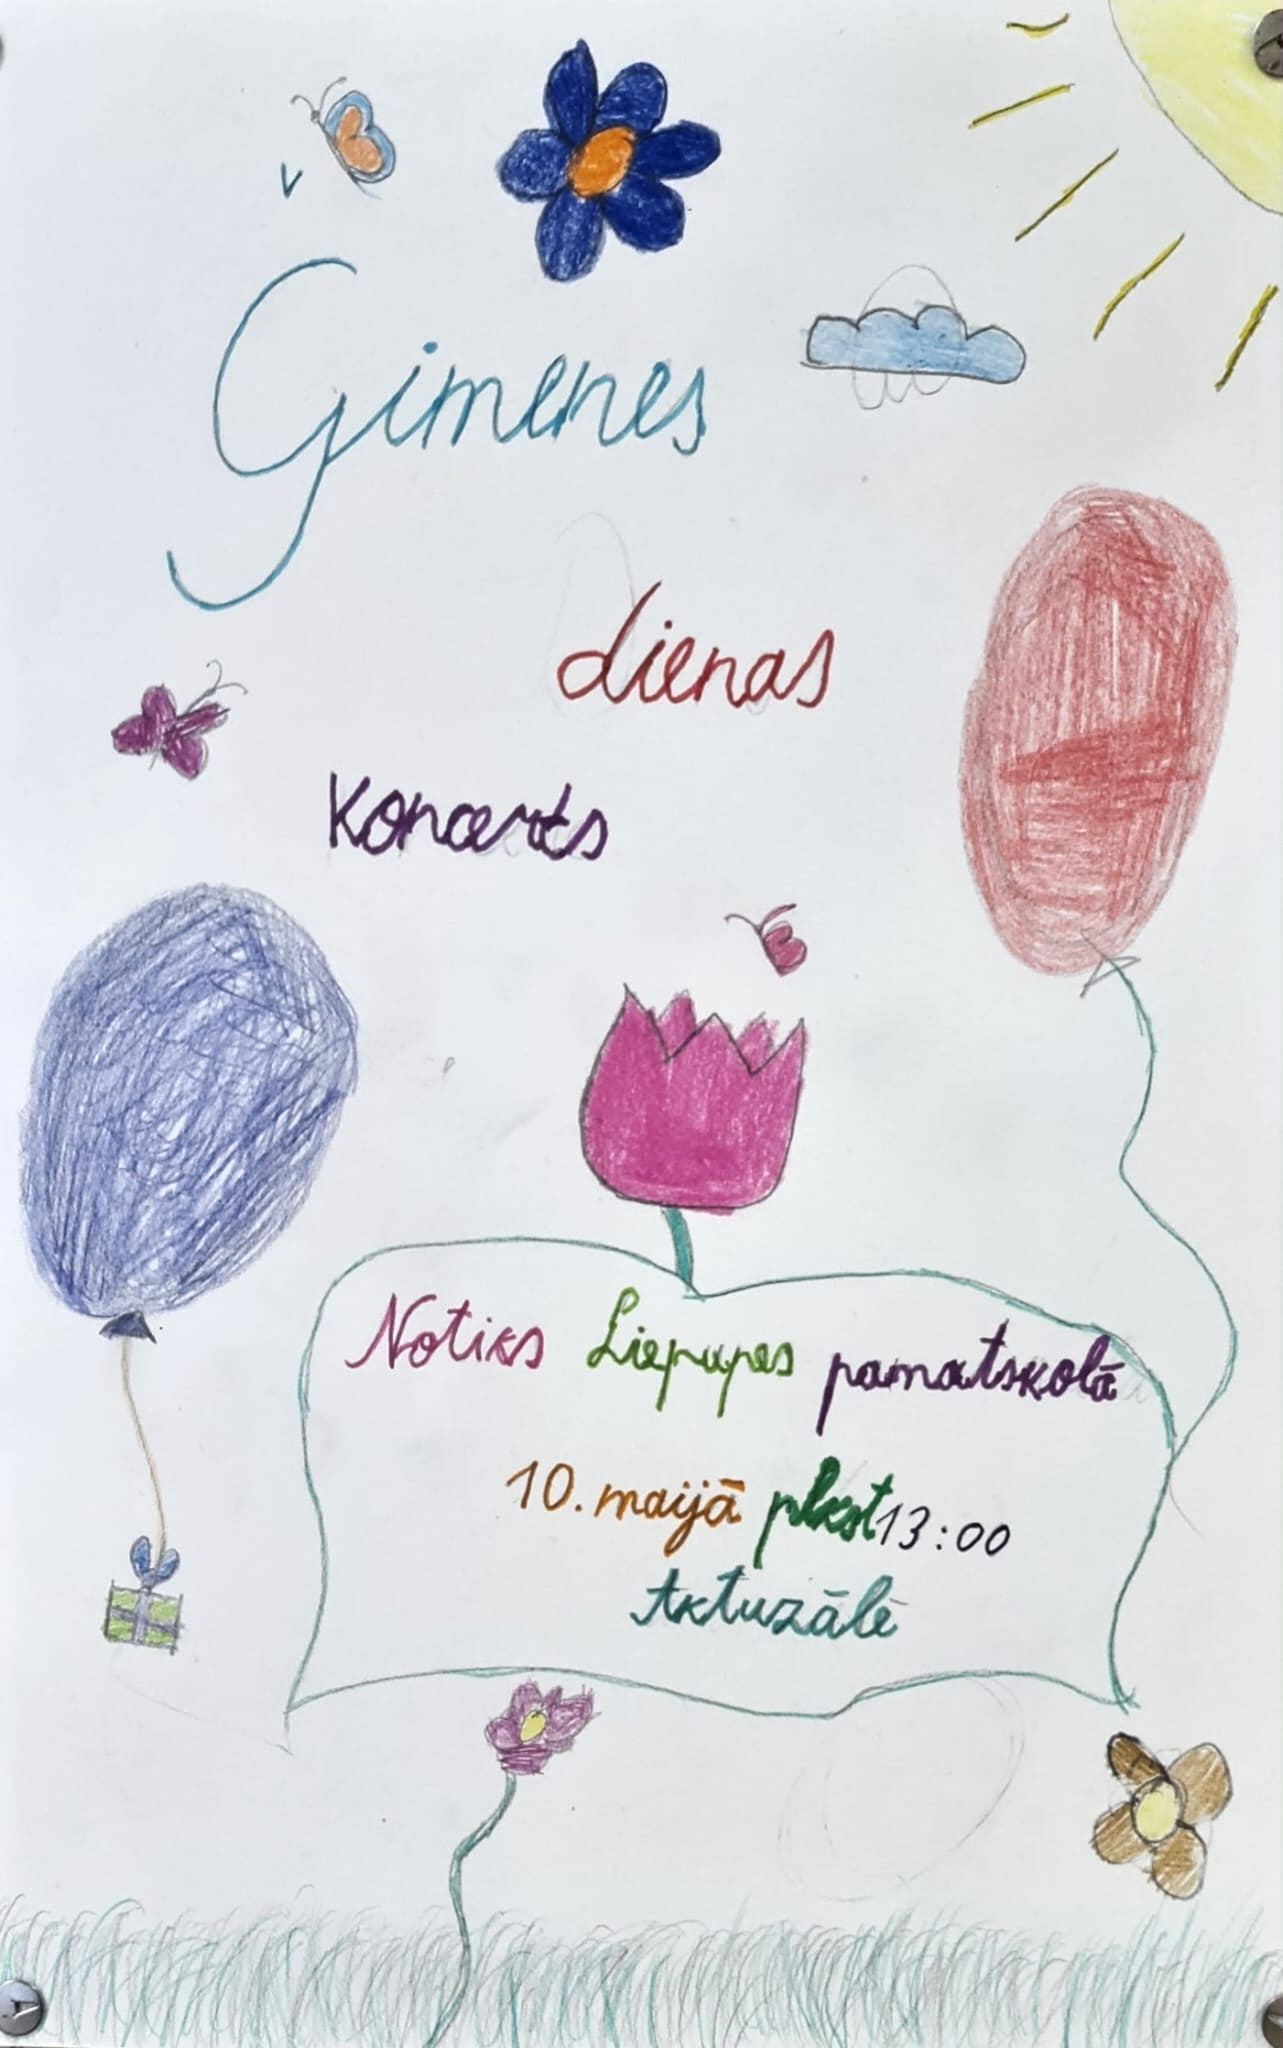 Ģimenes
dienas
Koncerts
Notiks Liepupes pamatskolā
10. maijā plkst 13:00
Aktuzālē